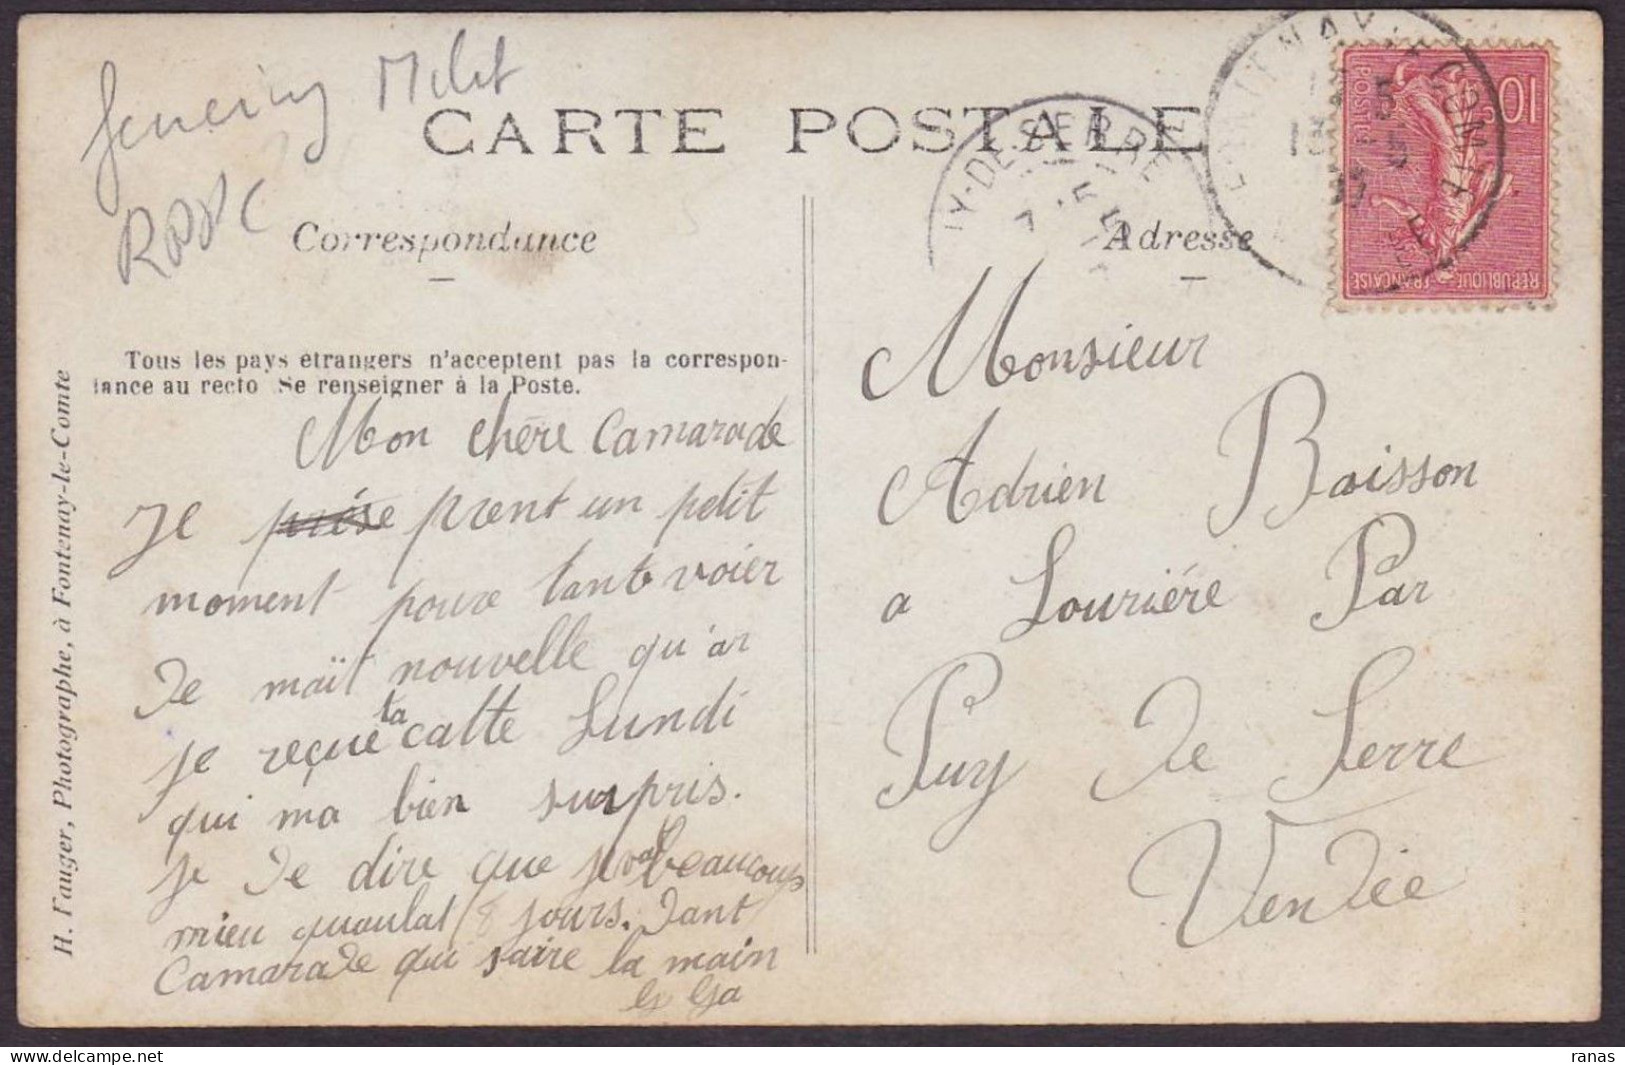 CARTE POSTALE
Correspondance
Adresse
Tous les pays étrangers n'acceptent pas la correspon-
dance au recto Se renseigner à la Poste.
H. Fauger, Photographe, à Fontenay-le-Comte
Mon chère Camarade
Je prent un petit
moment poure tant voier
De maït nouvelle qu'ar
je reçue ta catte Lundi
qui ma bien surpris.
je De dire que beaucoup
mieu quaulat 8 jours. Dant
Camarade qui saire la main
Monsieur
Adrien Baisson
a Louriére Par
Puy De Serre
Vendée
Y-DE-SERRE
FONTENAY-LE-COMTE
10
POSTES
REPUBLIQUE FRANÇAISE
ranas